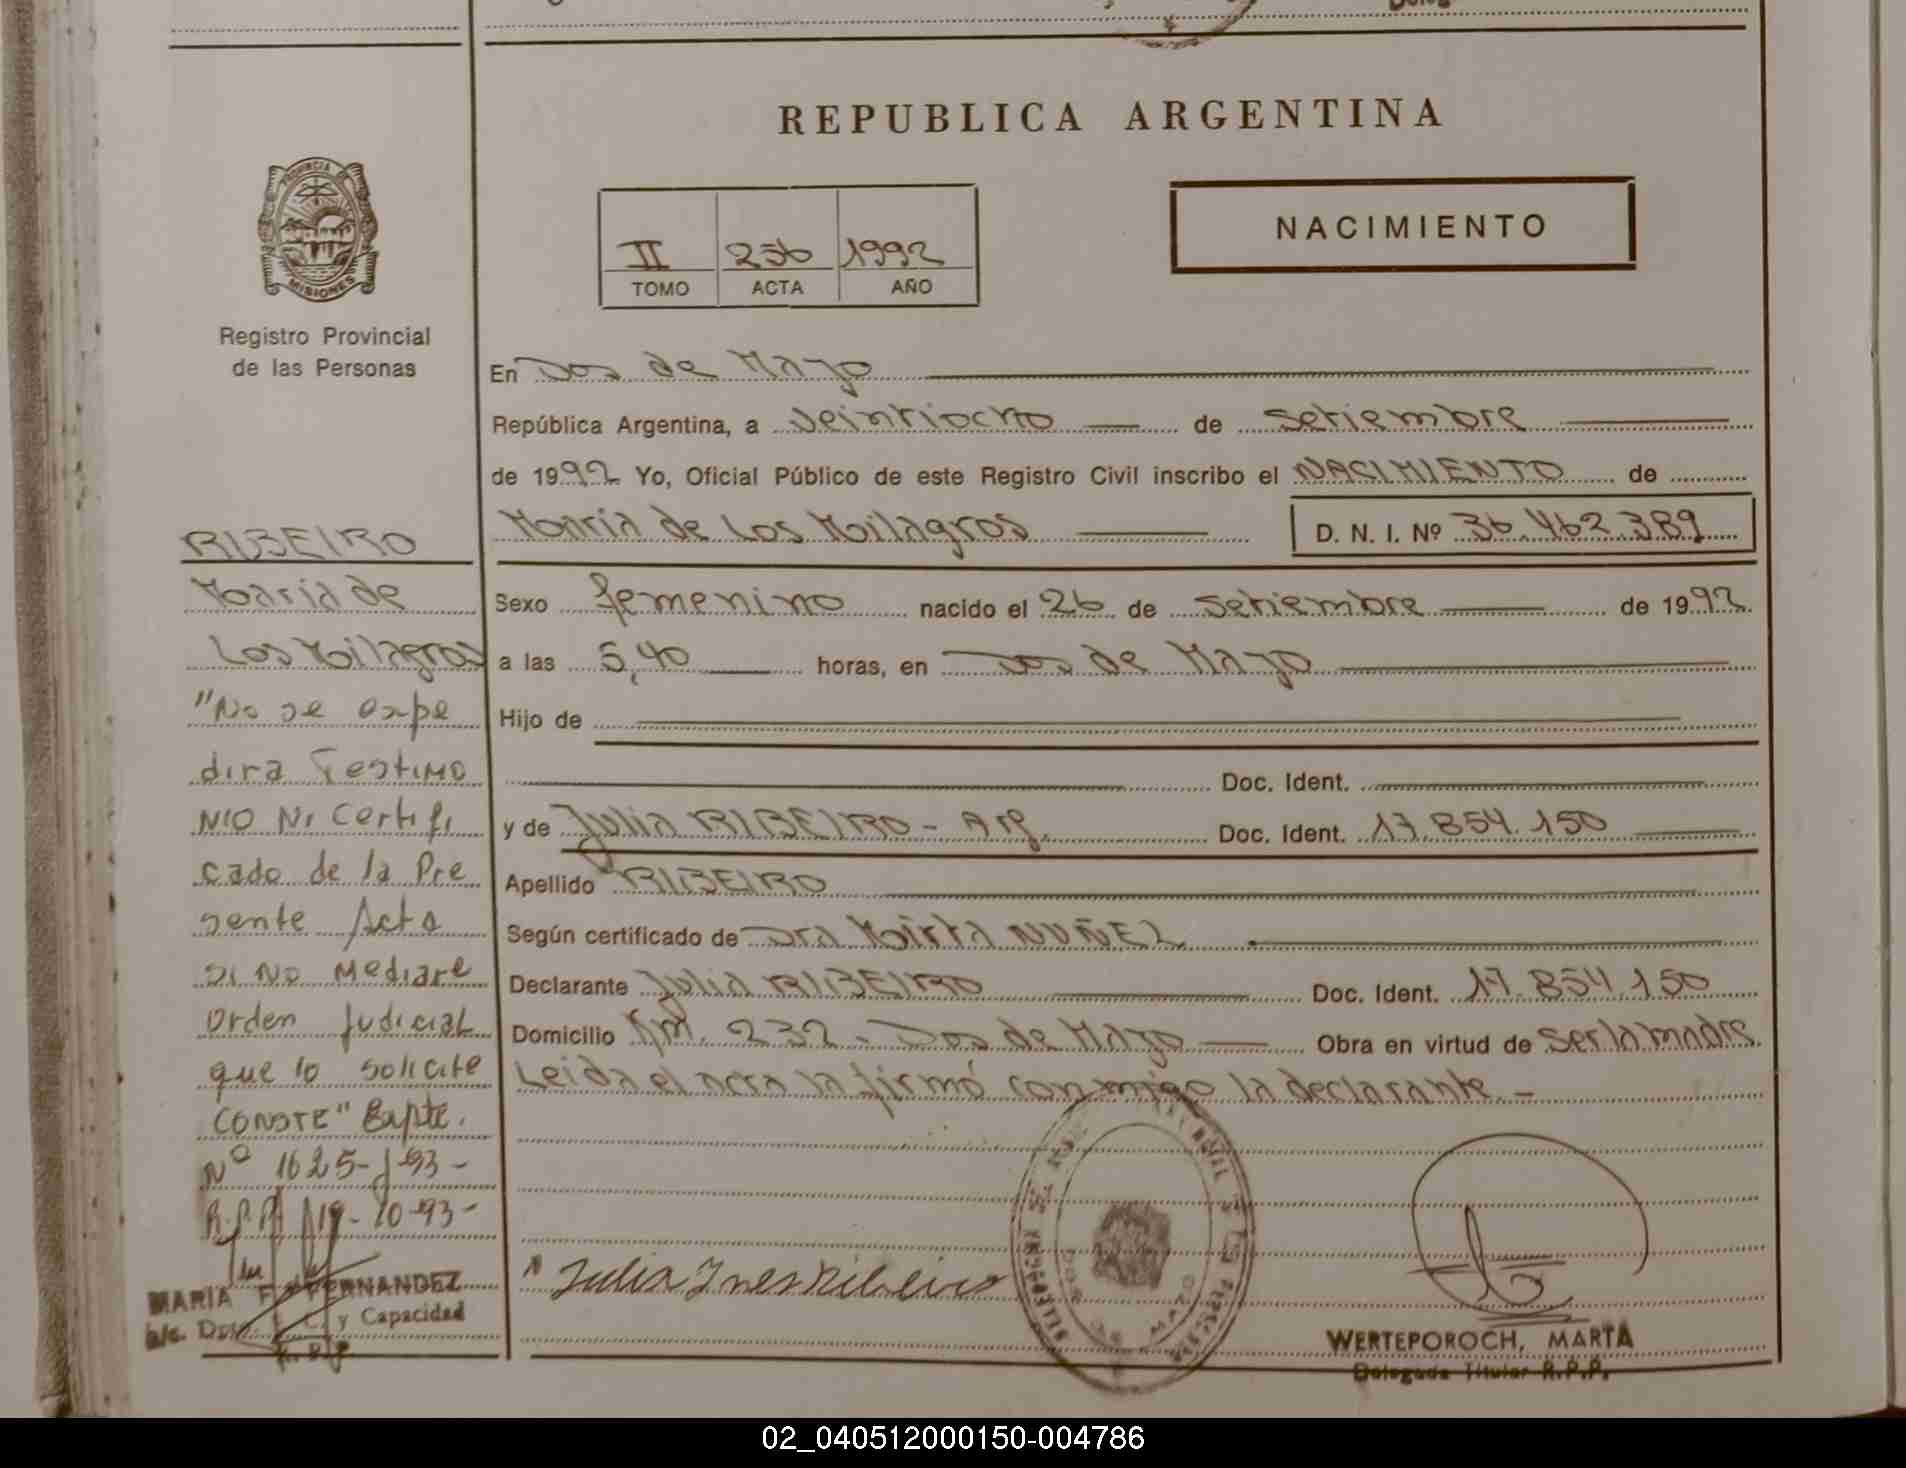 REPUBLICA ARGENTINA
PROVINCIA DE
MISIONES
Registro Provincial
de las Personas
II 256 1992
TOMO ACTA AÑO
NACIMIENTO
En Dos de Mayo
República Argentina, a veintiocho de setiembre
de 1992 Yo, Oficial Público de este Registro Civil inscribo el NACIMIENTO de
María de Los Milagros D. N. I. Nº 36.462.389
Sexo femenino nacido el 26 de setiembre de 1992
a las 5,40 horas, en Dos de Mayo
Hijo de
Doc. Ident.
y de Julia RIBEIRO - Arg. Doc. Ident. 17.854.150
Apellido RIBEIRO
Según certificado de Dra Mirta NUÑEZ
Declarante Julia RIBEIRO Doc. Ident. 17.854.150
Domicilio Km. 232 - Dos de Mayo Obra en virtud de ser la madre
Leida el acta la firmó conmigo la declarante. -
Julia Ines Ribeiro
WERTEPOROCH, MARTA
Delegada Titular R.P.P.
RIBEIRO
María de
Los Milagros
"No se expe
dira Testimo
nio Ni Certifi
cado de la Pre
sente Acta
Si No Mediare
Orden Judicial
que lo solicite
CONSTE" Expte.
Nº 1625-J-93-
R.P.P. 19-10-93-
MARIA F. FERNANDEZ
a/c. Dpto. C. y Capacidad
R. P. P.
02_040512000150-004786